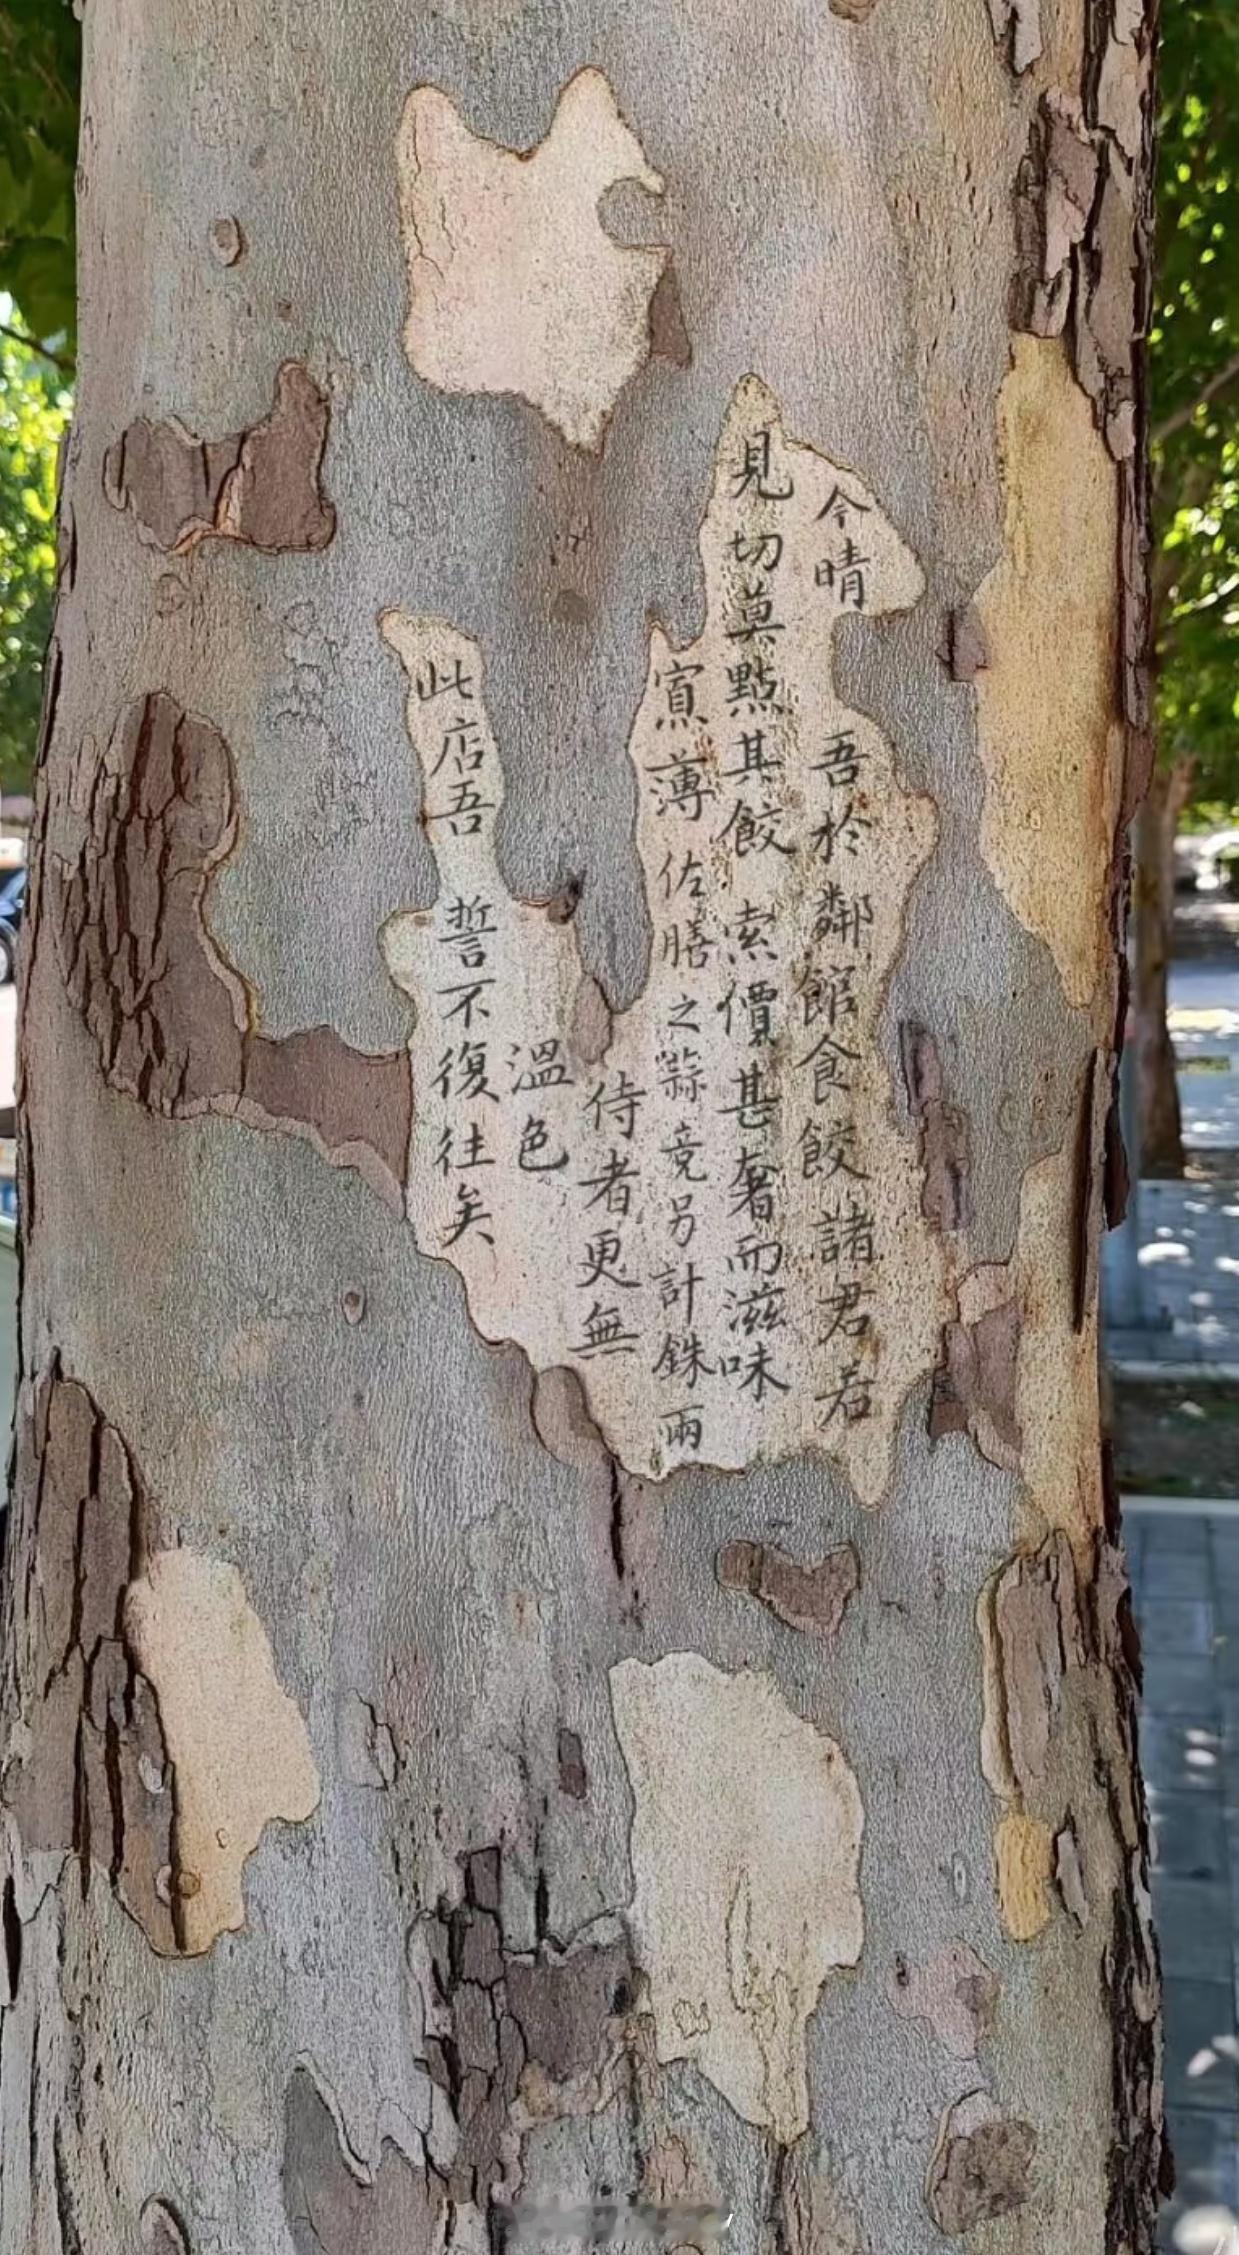 今晴 吾於鄰館食餃諸君若
見切莫點其餃索價甚奢而滋味
寡薄佐膳之蒜竟另計銖兩
侍者更無
溫色
此店吾誓不復往矣